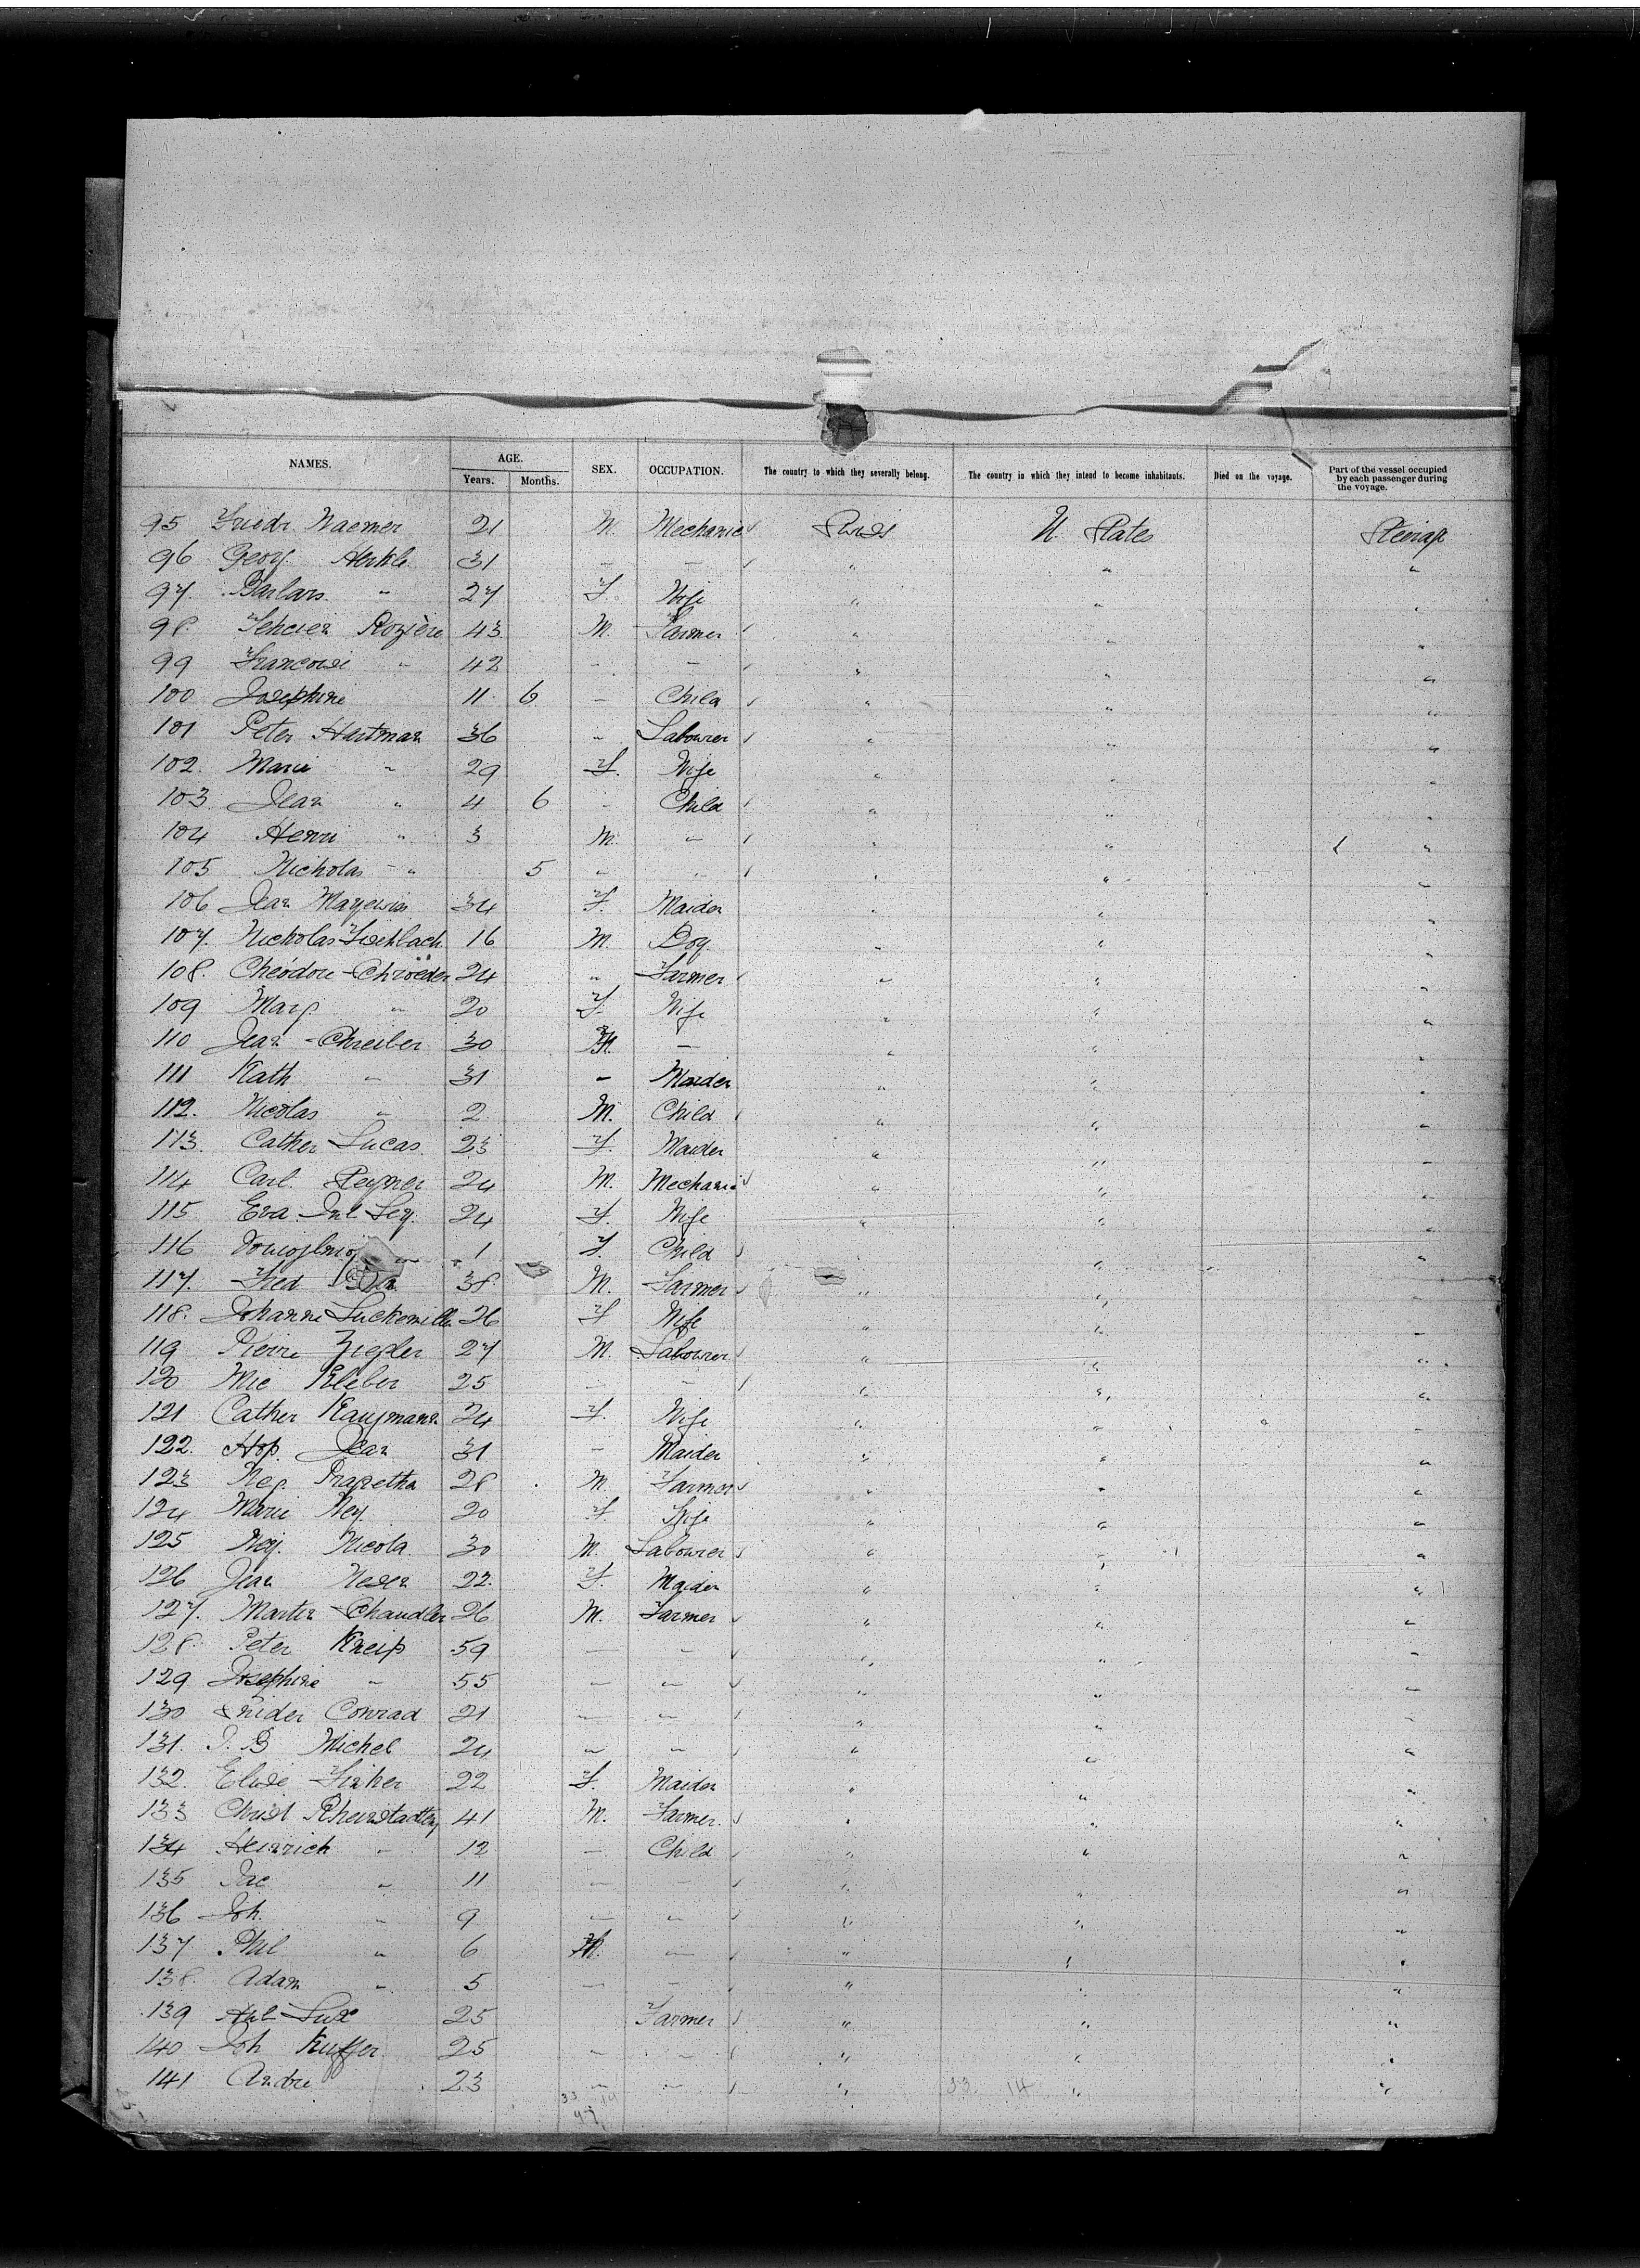 NAMES. AGE. SEX. OCCUPATION. The country to which they severally belong. The country in which they intend to become inhabitants. Died on the voyage. Part of the vessel occupied by each passenger during the voyage.
Years. Months.
95 Friedr. 21 M. Mechanic Swiss U. States Steerage
96 Georg. 31 — — " " "
97. " 27 F. Wife " " "
98. Rozière 43 M. Farmer " " "
99 " 42 - — " " "
100 Josephine 11 6 — Child " " "
101 Peter Hartman 36 " Labourer " " "
102. Marie " 29 F. Wife " " "
103. Jean " 4 6 - Child " " "
104 Henri " 3 M. — " " "
105 Nicholas - " 5 " " " " "
106 Jean 34 F. Maiden " " "
107. Nicholas 16 M. Boy " " "
108. Theódore Schröeder 24 " Farmer " " "
109 Marg. " 20 F. Wife " " "
110 Jean Schreiber 30 — " " "
111 Kath " 31 — Maiden " " "
112. Nicolas " 2 M. Child " " "
113. Cather Lucas. 23 F. Maiden " " "
114 Carl. 24 M. Mechanic " " "
115 Eva 24 F. Wife " " "
116 1 F. Child " " "
117. Fred 38 M. Farmer " " "
118. Johanne 26 F Wife " " "
119 Pierre Ziegler 27 M. Labourer " " "
120 Mic Kleber 25 — — " " "
121 Cather Kaufmann 24 F. Wife " " "
122. Hop. Jean 31 — Maiden " " "
123 28 M. Farmer " " "
124 Marie Ney. 20 F Wife " " "
125 Ney. Nicola 30 M. Labourer " " "
126 Jean 22. F. Maiden " " "
127. Martin Schandler 26 M. Farmer " " "
128. Peter Kneip 59 — — " " "
129 Josephine " 55 — — " " "
130 Snider Conrad 21 — — " " "
131. J. B Michel 24 " " " " "
132. Elise Finker 22 F. Maiden " " "
133 Christ 41 M. Farmer. " " "
134 Heinrich " 12 — Child " " "
135 Jac " 11 — — " " "
136 Joh. " 9 — — " " "
137 Phil " 6 M. — " " "
138. Adam " 5 — — " " "
139 Lux 25 Farmer " " "
140 Joh Kuffer 25 — — " " "
141 Andre 23 — — " " "
33 14